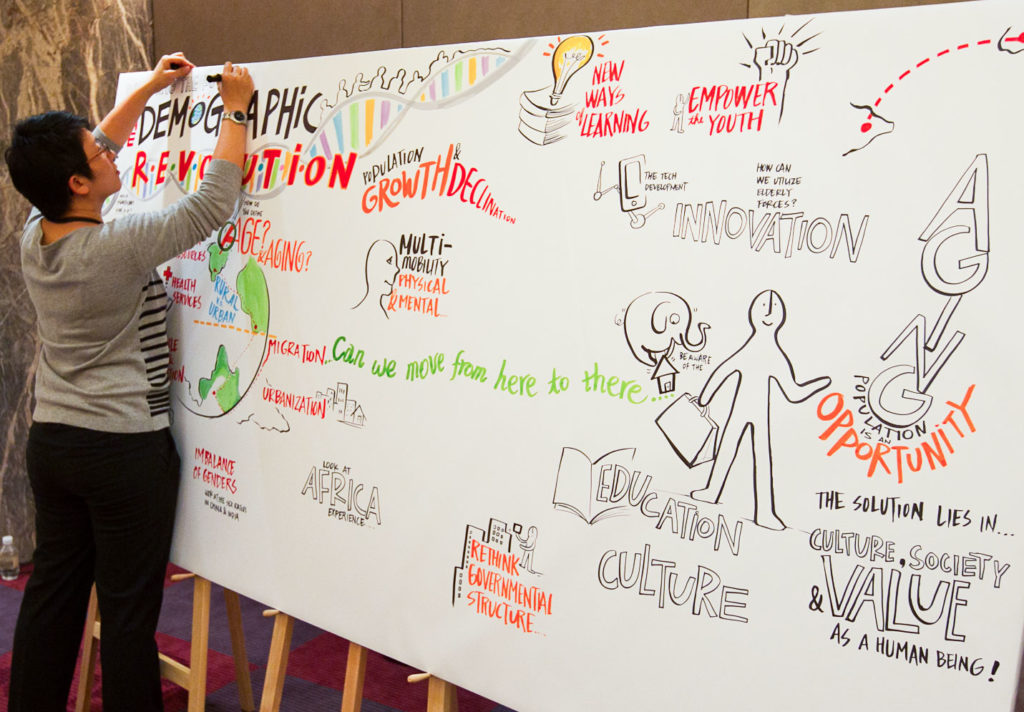 THE
DEMOGRAPHIC
REVOLUTION
POPULATION
GROWTH & DECLINATION
HOW DO
YOU DEFINE
AGE?
& AGING?
HEALTH
SERVICES
RURAL
VS
URBAN
MULTI-
MOBILITY
PHYSICAL
& MENTAL...
MIGRATION..
Can we move from here to there....
URBANIZATION
IMBALANCE
OF GENDERS
LOOK AT THE SEX RATIOS
IN CHINA & INDIA
LOOK AT
AFRICA
EXPERIENCE...
RETHINK
GOVERNMENTAL
STRUCTURE...
NEW
WAYS
of LEARNING
EMPOWER
the YOUTH
THE TECH
DEVELOPMENT
HOW CAN
WE UTILIZE
ELDERLY
FORCES?
INNOVATION
BE AWARE
OF THE
AGING
POPULATION
IS AN
OPPORTUNITY
EDUCATION
CULTURE
THE SOLUTION LIES IN...
CULTURE, SOCIETY
& VALUE
AS A HUMAN BEING!